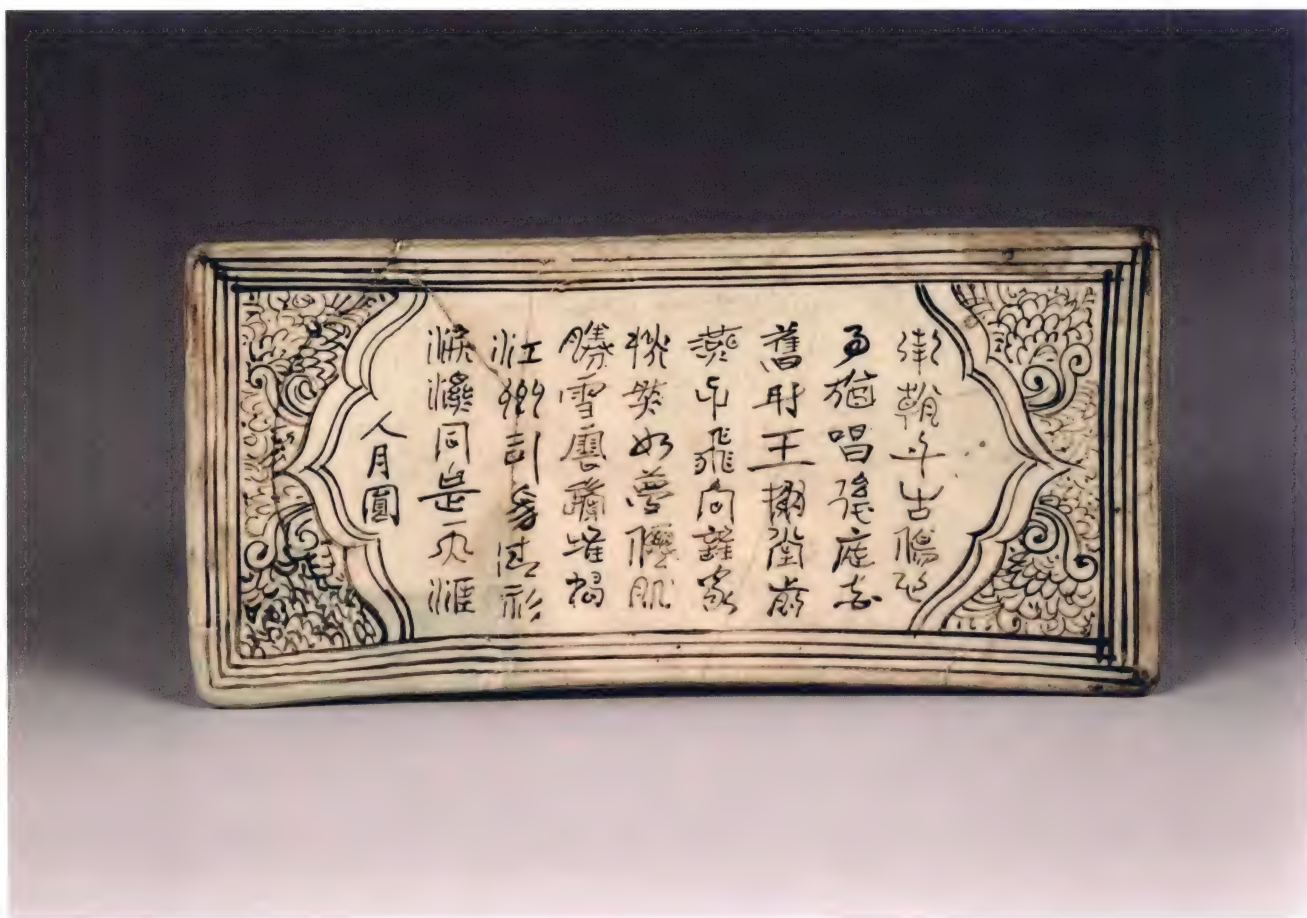 朝千古傷心
事猶唱後庭花
舊时王榭堂前
燕子飛向誰家
如夢僊肌
勝雪雲鬢堆
江州司馬清衫
淚濕同是天涯
人月圓